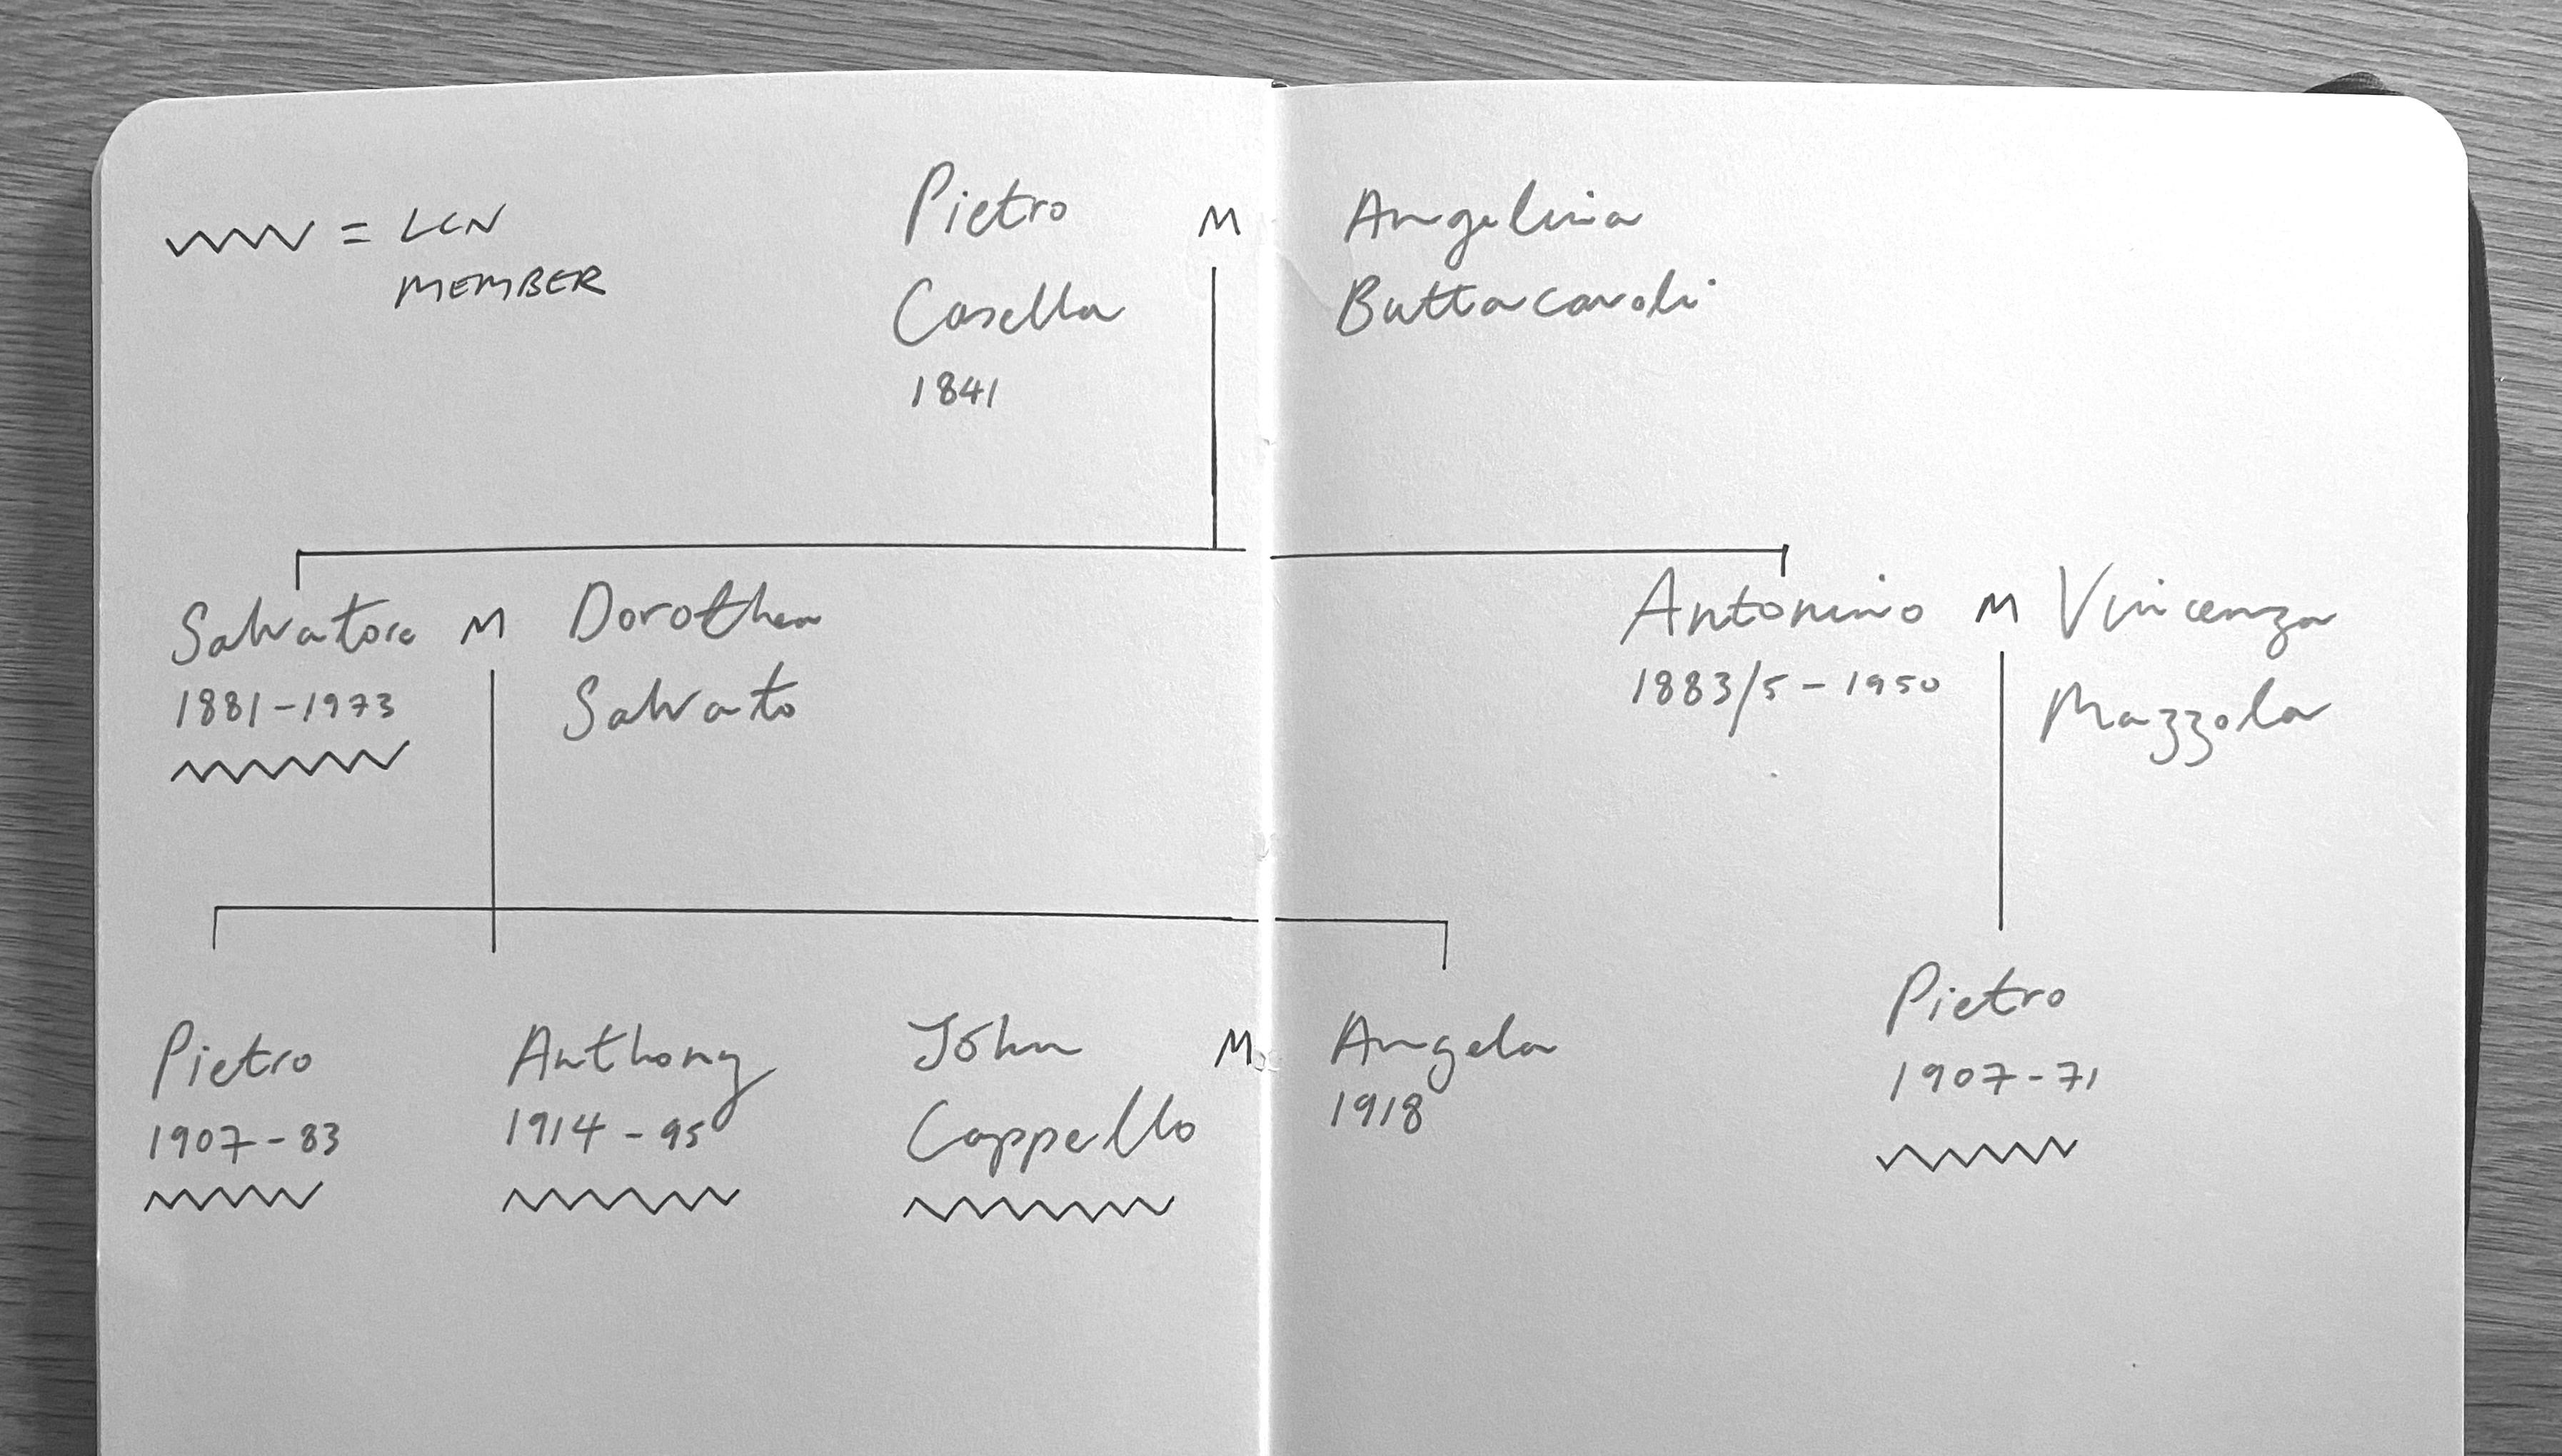 = LCN
MEMBER
Pietro M Angelina
Casella Buttacavoli
1841
Salvatore M Dorothea
1881-1973 Salvato
Antonino M Vincenza
1883/5-1950 Mazzola
Pietro
1907-83
Anthony
1914-95
John M Angela
Cappello 1918
Pietro
1907-71